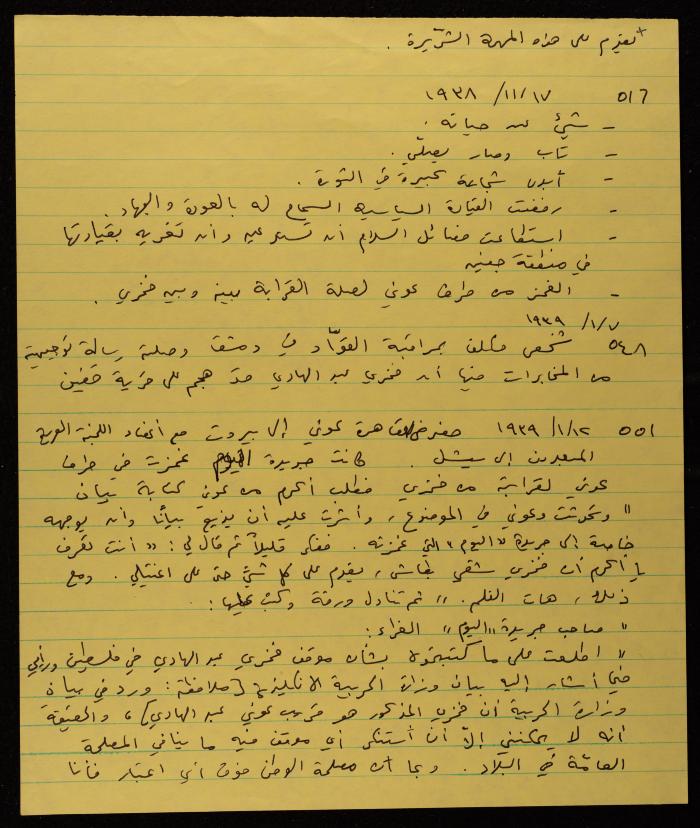 + تقدم على هذه المهمة الشريرة .
٥١٦ ١٧/١١/١٩٣٨
- شيء عن حياته .
- تاب وصار يصلّي .
- أبدى شجاعة كبيرة في الثورة .
- رفضت القيادة السياسية السماح له بالعودة والجهاد .
- استطاعت فصائل السلام أن تستوعبه وأن تغريه بقيادتها
في منطقة جنين
- الغمز من طرف عوني لصلة القرابة بينه وبين فخري .
٧/١/١٩٣٩
٥٤٨ شخص مكلف بمراقبة القوّاد في دمشق وصلته رسالة توجيهية
من المخابرات منها أن فخري عبد الهادي هجم على قرية
٥٥١ ١٢/١/١٩٣٩ حضر القاهرة عوني إلى بيروت مع أعضاء اللجنة العربية
المبعدين إلى سيشل . كانت جريدة اليوم غمزت في طرف
عوني لقرابته من فخري فطلب أكرم من عوني كتابة بيان
" وتحدثت وعوني في الموضوع ، وأشرت عليه أن يذيع بيانًا وأن يوجهه
خاصة إلى جريدة "اليوم" التي غمزته . ففكر قليلاً ثم قال لي : " أنت تعرف
يا أكرم أن فخري شقي ، يقدم على كل شيء حتى على اغتيالي . ومع
ذلك ، هات القلم . " ثم تناول ورقة وكتب عليها :
" صاحب جريدة "اليوم" الغراء :
" اطلعت على ما كتبتموه بشأن موقف فخري عبد الهادي في فلسطين ورأيي
في أشار إليه بيان وزارة الحربية الانكليزية [ملاحظة : ورد في بيان
وزارة الحربية أن فخري المذكور هو قريب عوني عبد الهادي] ، والحقيقة
أنه لا يمكنني إلّا أن أستنكر أي موقف فيه ما ينافي المصلحة
العامّة في البلاد . وبما أن مصلحة الوطن فوق أي اعتبار فأنا